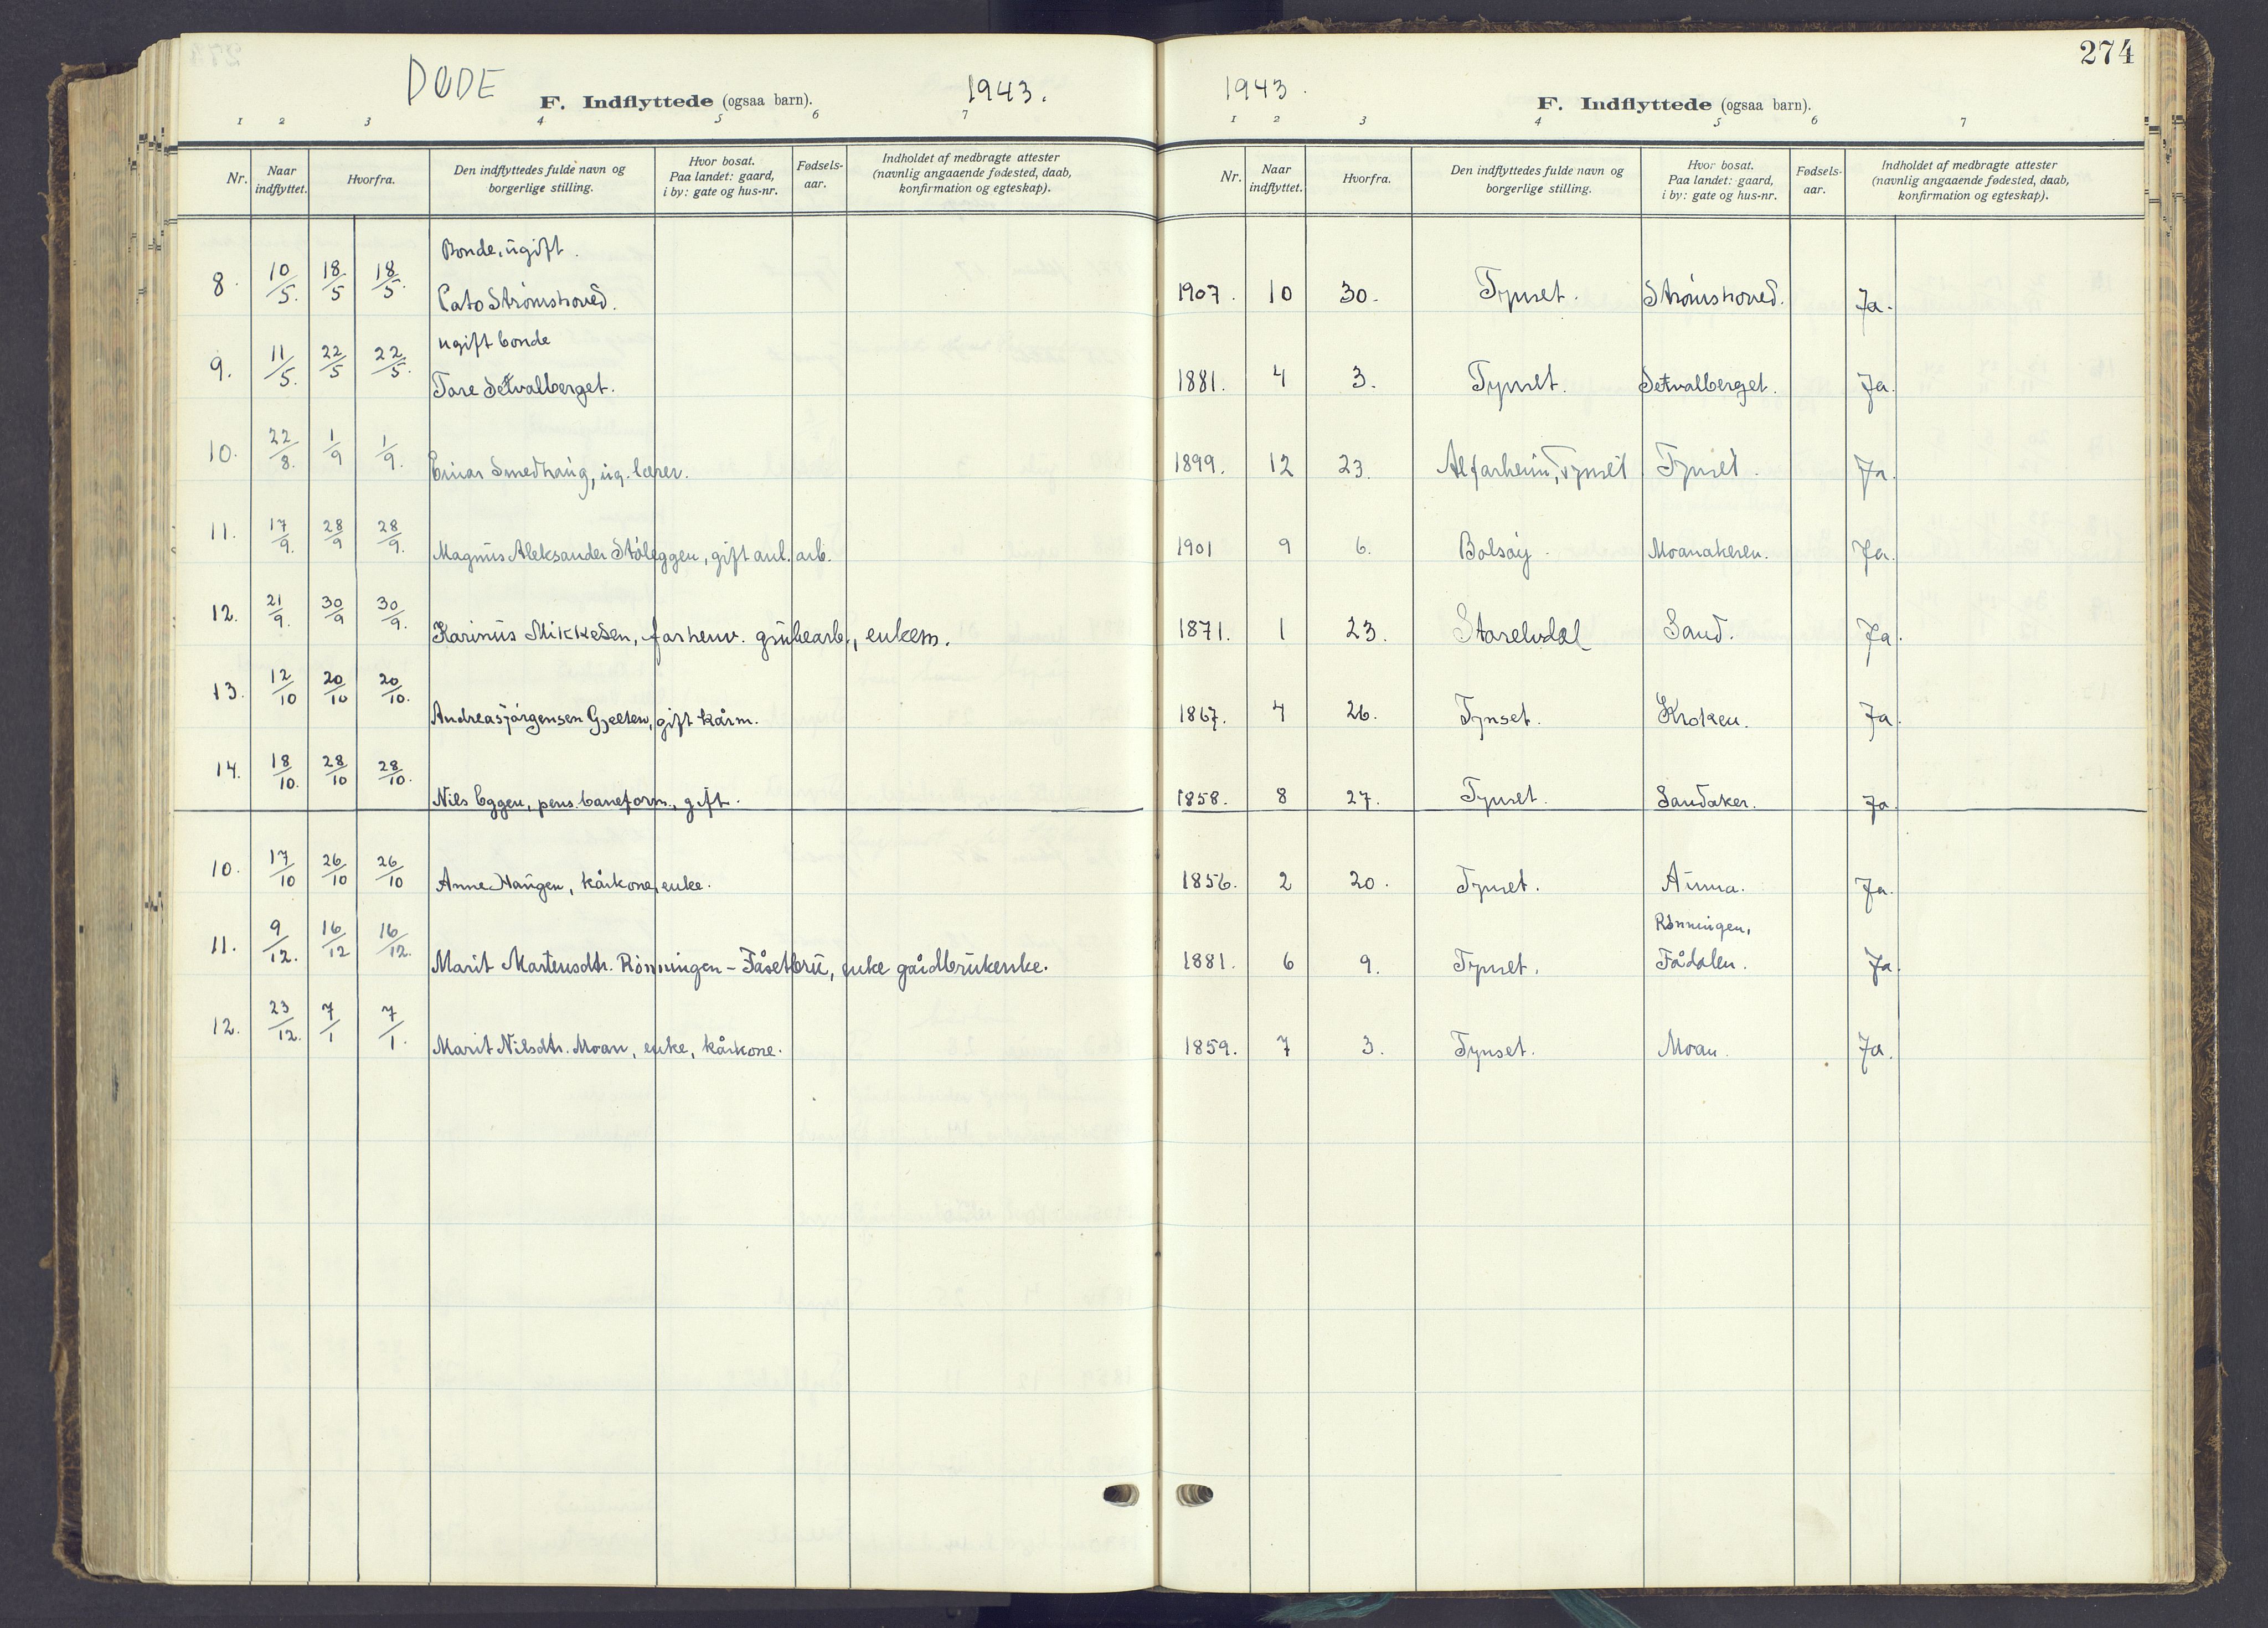 DØDE
F. Indflyttede (ogsaa barn).
1943.
1 2 3 4 5 6 7
Nr. Naar indflyttet. Hvorfra. Den indflyttedes fulde navn og borgerlige stilling. Hvor bosat. Paa landet: gaard, i by: gate og hus-nr. Fødsels-aar. Indholdet af medbragte attester (navnlig angaaende fødested, daab, konfirmation og egteskap).
Bonde, ugift.
8. 10/5. 18/5 18/5. Cato Strømshoved.
ugift bonde
9. 11/5. 22/5 22/5. Tore Setvalberget.
10. 22/8. 1/9 1/9. Einar Smedhaug, ug. lærer.
11. 17/9. 28/9 28/9. Magnus Aleksander Støleggen, gift anl. arb.
12. 21/9. 30/9 30/9. Karinus Mikkelsen, forhenv. grubearb., enkem.
13. 12/10 20/10 20/10. Andreas Jørgensen Gjelten, gift kårm.
14. 18/10. 28/10 28/10. Nils Eggen, pens. baneform., gift.
10. 17/10 26/10 26/10 Anne Haugen, kårkone, enke.
11. 9/12. 16/12 16/12. Marit Martensdtr. Rønningen - Fåsetbru, enke gårdbrukenke.
12. 23/12. 7/1 7/1. Marit Nilsdtr. Moan, enke, kårkone.
274
1943.
F. Indflyttede (ogsaa barn).
1 2 3 4 5 6 7
Nr. Naar indflyttet. Hvorfra. Den indflyttedes fulde navn og borgerlige stilling. Hvor bosat. Paa landet: gaard, i by: gate og hus-nr. Fødsels-aar. Indholdet af medbragte attester (navnlig angaaende fødested, daab, konfirmation og egteskap).
1907. 10 30. Tynset. Strømshoved. Ja.
1881. 4 3. Tynset. Setvalberget. Ja.
1899. 12 23. Alfarheim, Tynset Tynset. Ja.
1901 9 6. Bolsøy. Moanakeren. Ja.
1871. 1 23. Storelvdal Sand. Ja.
1867. 4 26. Tynset. Kroken. Ja.
1858. 8 27. Tynset. Sandaker. Ja.
1856. 2 20. Tynset. Auma. Ja.
Rønningen,
1881. 6 9. Tynset. Fådalen. Ja.
1859. 7 3. Tynset. Moan. Ja.